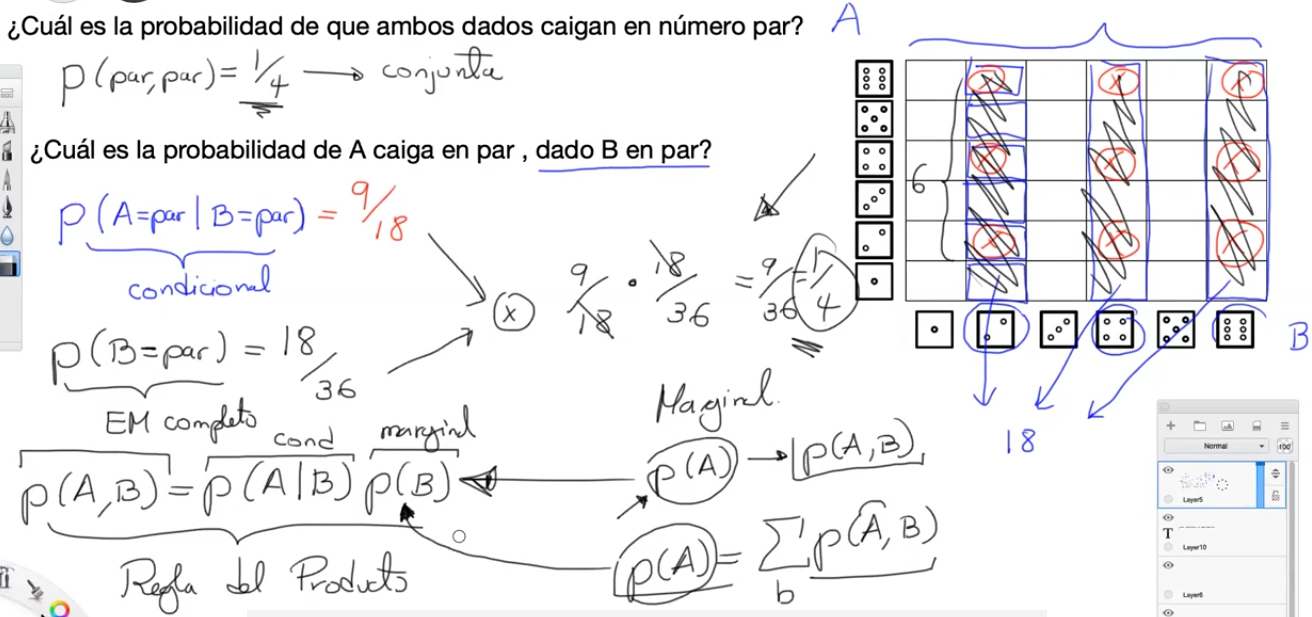 ¿Cuál es la probabilidad de que ambos dados caigan en número par?
p(par, par) = 1/4 → conjunta
¿Cuál es la probabilidad de A caiga en par , dado B en par?
p(A=par | B=par) = 9/18
condicional
p(B=par) = 18/36
EM completo
x
9/18 · 18/36 = 9/36 = 1/4
cond
marginal
p(A,B) = p(A|B) p(B)
Regla del Producto
Marginal.
p(A) → p(A,B)
p(A) = ∑ p(A,B)
b
A
6
B
18
Normal
100
Layer5
T
Layer10
Layer6